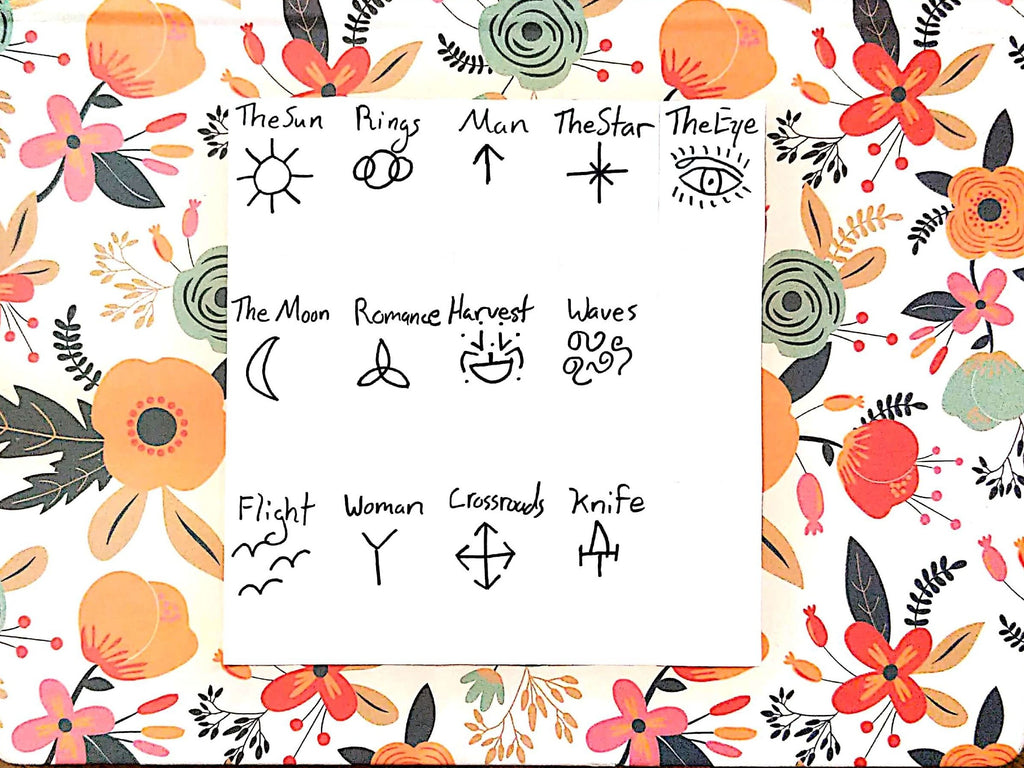 The Sun Rings Man The Star The Eye
The Moon Romance Harvest Waves
Flight Woman Crossroads Knife